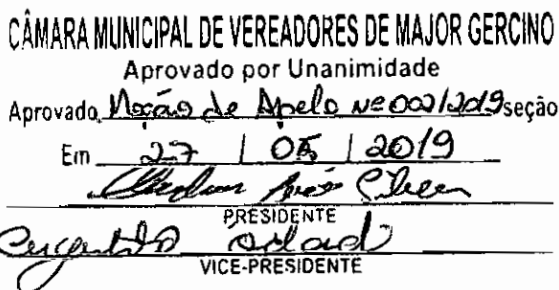 CÂMARA MUNICIPAL DE VEREADORES DE MAJOR GERCINO
Aprovado por Unanimidade
Aprovado Moção de Apelo Nº 002/2019 seção
Em 27 / 05 / 2019
PRESIDENTE
VICE-PRESIDENTE